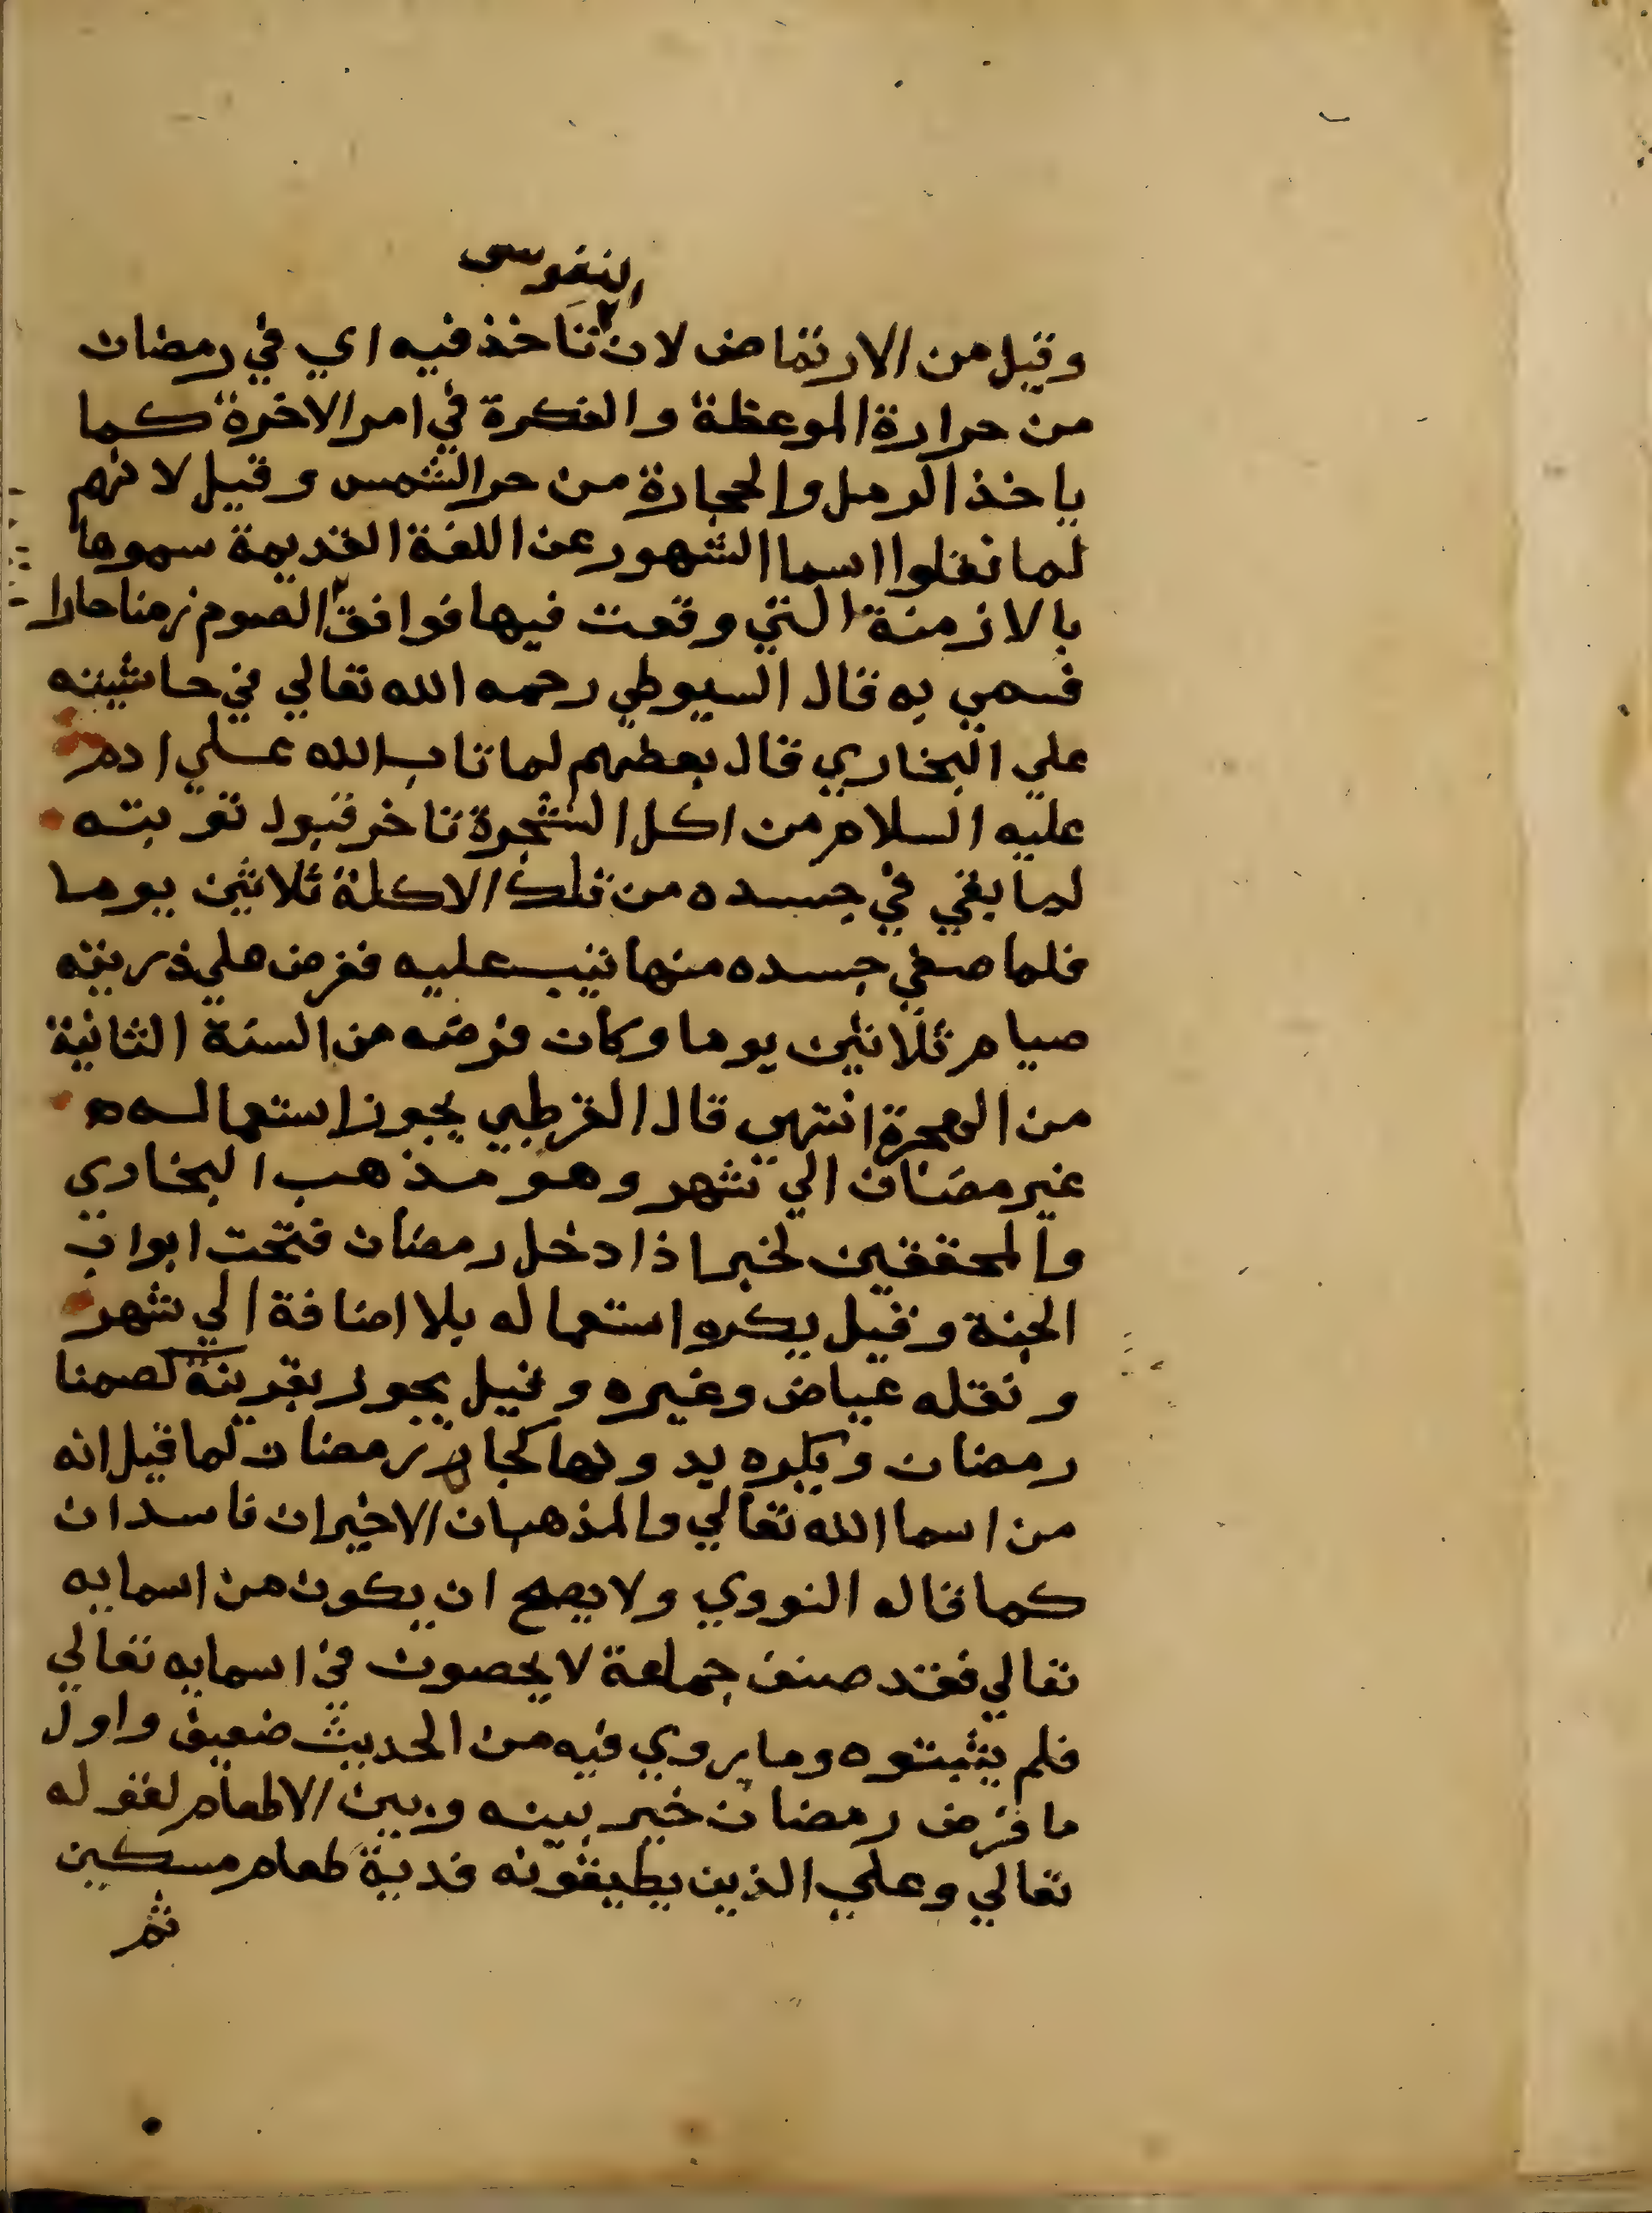 النفوس
وقيل من الارتماض لان تاخذ فيه اي في رمضان
من حرارة الموعظة والفكرة في امر الاخرة كما
ياخذ الرمل والحجارة من حر الشمس وقيل لانهم
لما نقلوا اسما الشهور عن اللغة القديمة سموها
بالازمنة التي وقعت فيها فوافق الصوم زمنا حارا
فسمي به قال السيوطي رحمه الله تعالي في حاشيته
علي البخاري قال بعضهم لما تاب الله علي ادم
عليه السلام من اكل الشجرة تاخر قبول توبته
لما بقي في جسده من تلك الاكلة ثلاثين يوما
فلما صفي جسده منها تيب عليه ففرض علي ذريته
صيام ثلاثين يوما وكان فرضه من السنة الثانية
من الهجرة انتهي قال القرطبي يجوز استعماله
غير مضاف الي شهر وهو مذهب البخاري
والمحققين لخبر اذا دخل رمضان فتحت ابواب
الجنة وقيل يكره استعماله بلا اضافة الي شهر
ونقله عياض وغيره وقيل يجوز بقرينة كصمنا
رمضان ويكره بدونها كجا رمضان لما قيل انه
من اسما الله تعالي والمذهبان الاخيران فاسدان
كما قاله النووي ولا يصح ان يكون من اسمايه
تعالي فقد صنف جماعة لا يحصون في اسمايه تعالي
فلم يثبتوه وما يروي فيه من الحديث ضعيف واول
ما فرض رمضان خير بينه وبين الاطعام لقوله
تعالي وعلي الذين يطيقونه فدية طعام مسكين
ثم